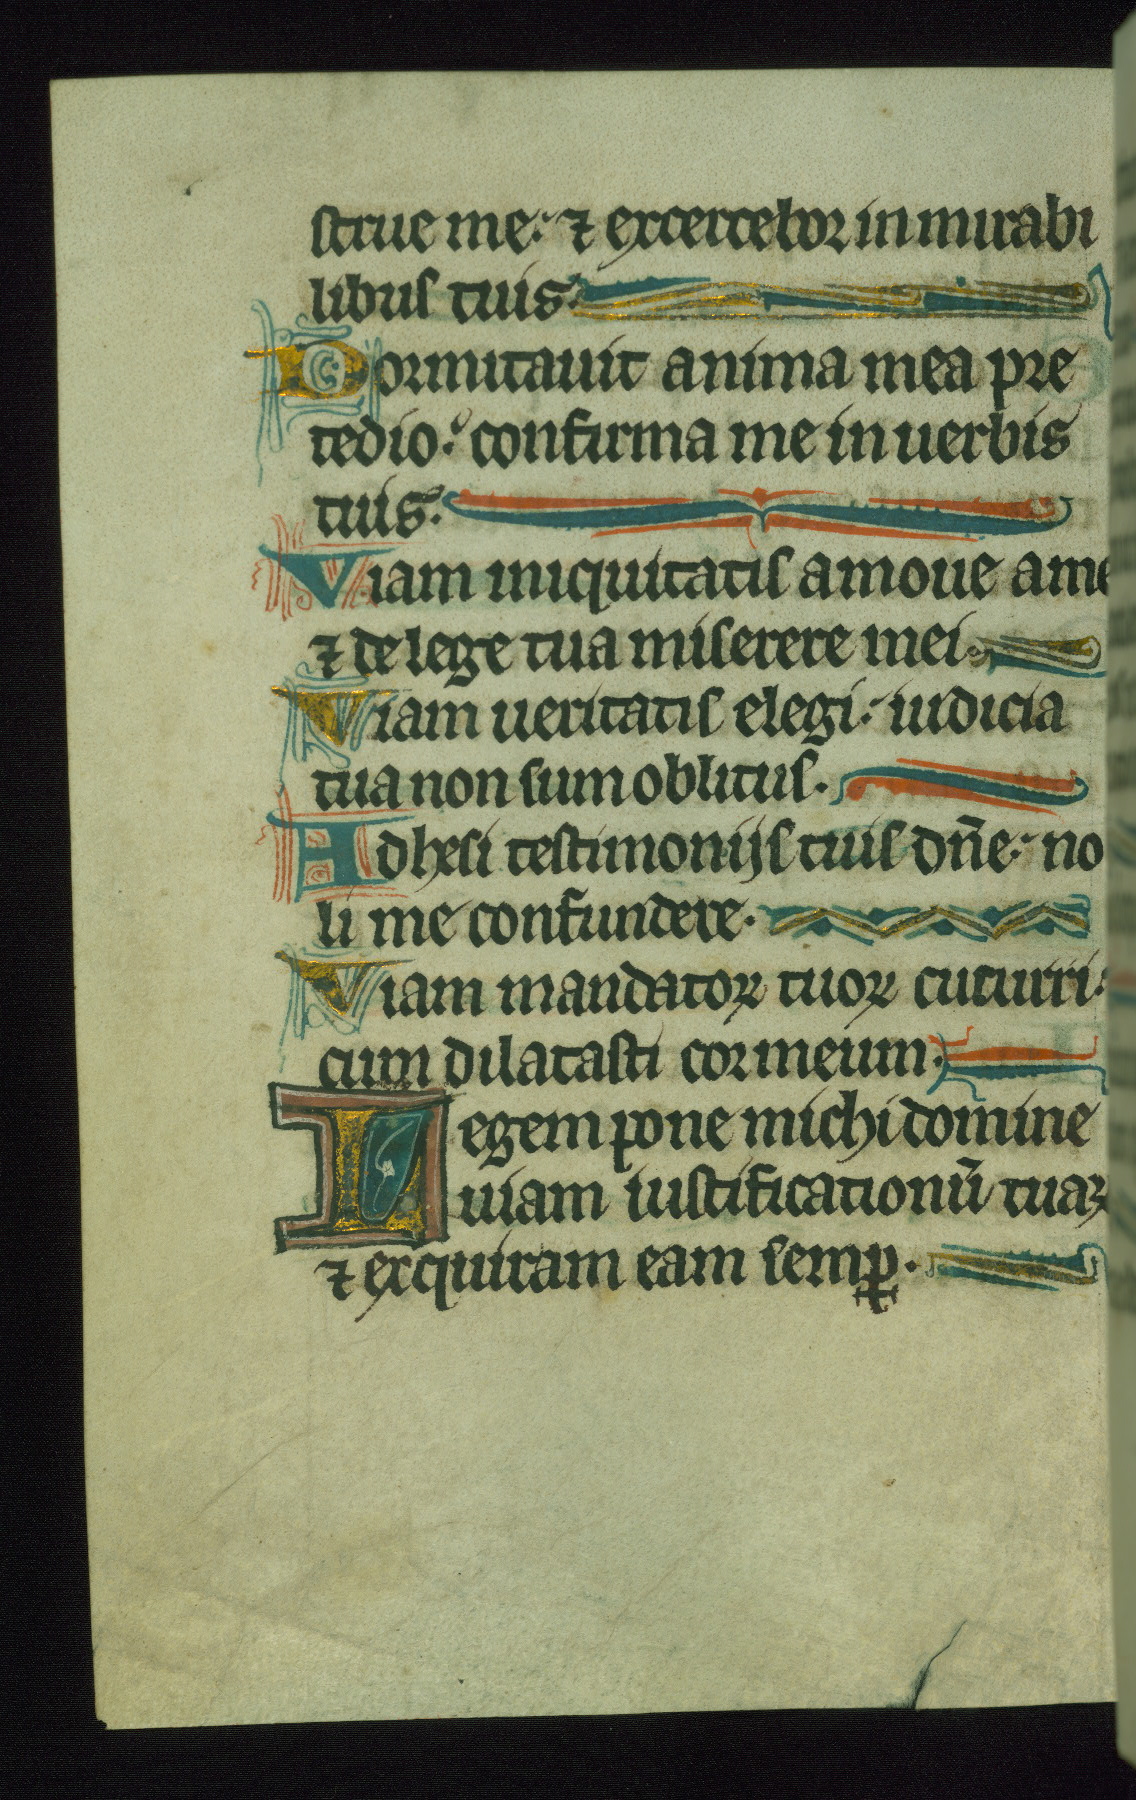 strue me: ⁊ excercebor in mirabi
libus tuis.
Dormitauit anima mea pre
tedio: confirma me in uerbis
tuis.
Viam iniquitatis amoue a me
⁊ de lege tua miserere mei.
Viam ueritatis elegi: iudicia
tua non sum oblitus.
Adhesi testimonijs tuis dñe: no
li me confundere.
Viam mandatoꝝ tuoꝝ cucurri:
cum dilatasti cor meum.
Legem pone michi domine
uiam iustificationū tuaꝝ
⁊ exquiram eam semꝑ.